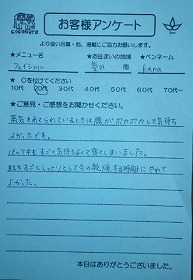 お客様アンケート
より良い品質・色、掲載にご協力お願いします。
★メニュー名 ★お住まいの地域 ★ペンネーム
フェイシャル 市 kana
★○を付けてください
10代 20代 30代 40代 50代 60代 70代
★ご意見・ご感想をお聞かせください。
蒸気をあてられているときは顔がポカポカして気持ち
よかったです。
パック中もすごく気持ちよくて寝てしまいました。
すごくしっとりとして今の乾燥する時期にピッタリ
よかった。
本日はありがとうございました。